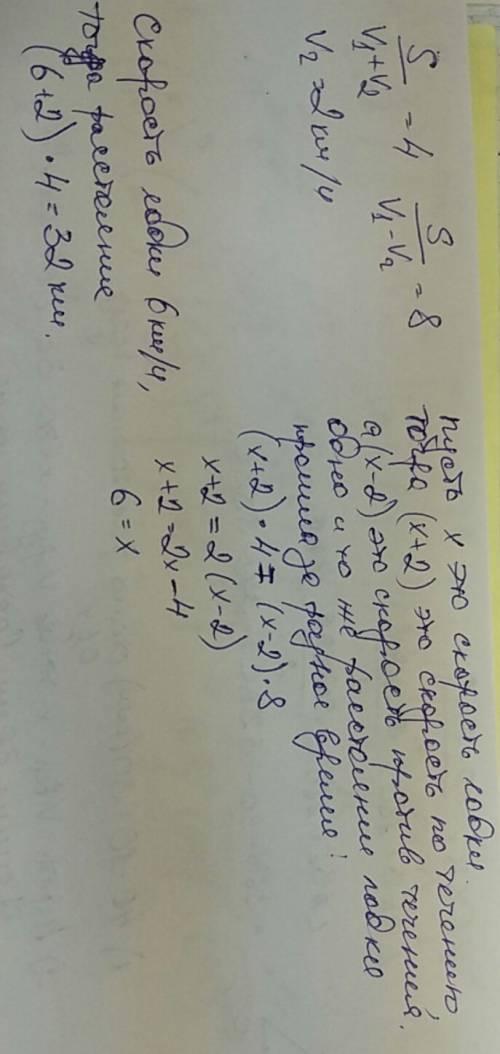 S/(V₁+V₂) = 4 S/(V₁-V₂) = 8
V₂ = 2 км/ч
Пусть x это скорость лодки.
тогда (x+2) это скорость по течению,
а (x-2) это скорость против течения.
одно и то же расстояние лодка
прошла за разное время!
(x+2)·4 = (x-2)·8
x+2 = 2(x-2)
x+2 = 2x-4
6 = x
Скорость лодки 6 км/ч,
тогда расстояние
(6+2)·4 = 32 км.